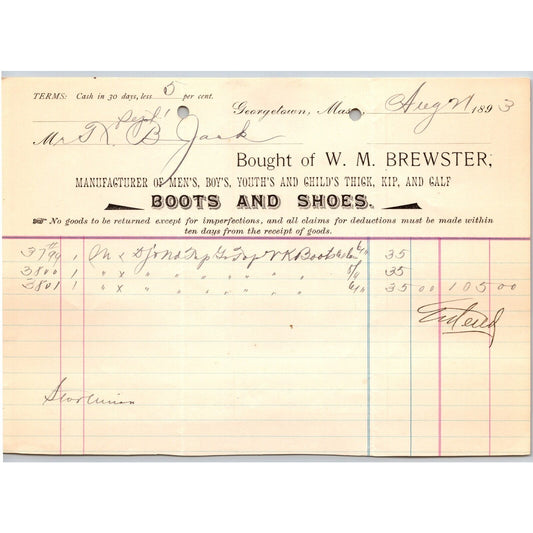 TERMS: Cash in 30 days, less 5 per cent.
Georgetown, Mass., Aug 21 1893
Sept 1
Mr T. K. B Jack
Bought of W. M. BREWSTER,
MANUFACTURER OF MEN'S, BOY'S, YOUTH'S AND CHILD'S THICK, KIP, AND CALF
BOOTS AND SHOES.
No goods to be returned except for imperfections, and all claims for deductions must be made within
ten days from the receipt of goods.
3799 1 M Top K Boots 6/10 35
3800 1 " " " " " " 5/9 35
3801 1 " " " " " " 6/10 35 00 105 00